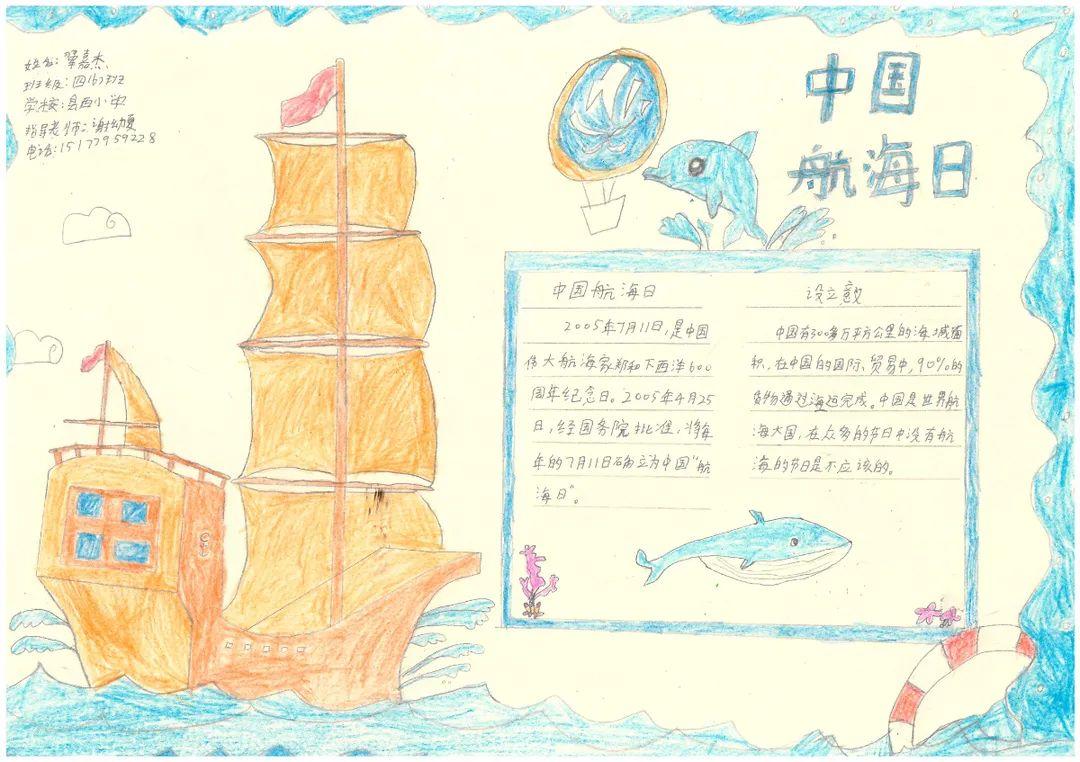 姓名:覃嘉杰
班级:四(6)班
学校:县西小学
指导老师:谢幼夏
电话:15177959228
中国
航海日
中国航海日
2005年7月11日,是中国
伟大航海家郑和下西洋600
周年纪念日。2005年4月25
日,经国务院批准,将每
年的7月11日确立为中国“航
海日”。
设立意义
中国有300多万平方公里的海域面
积,在中国的国际贸易中,90%的
货物通过海运完成。中国是世界航
海大国,在众多的节日中没有航
海的节日是不应该的。